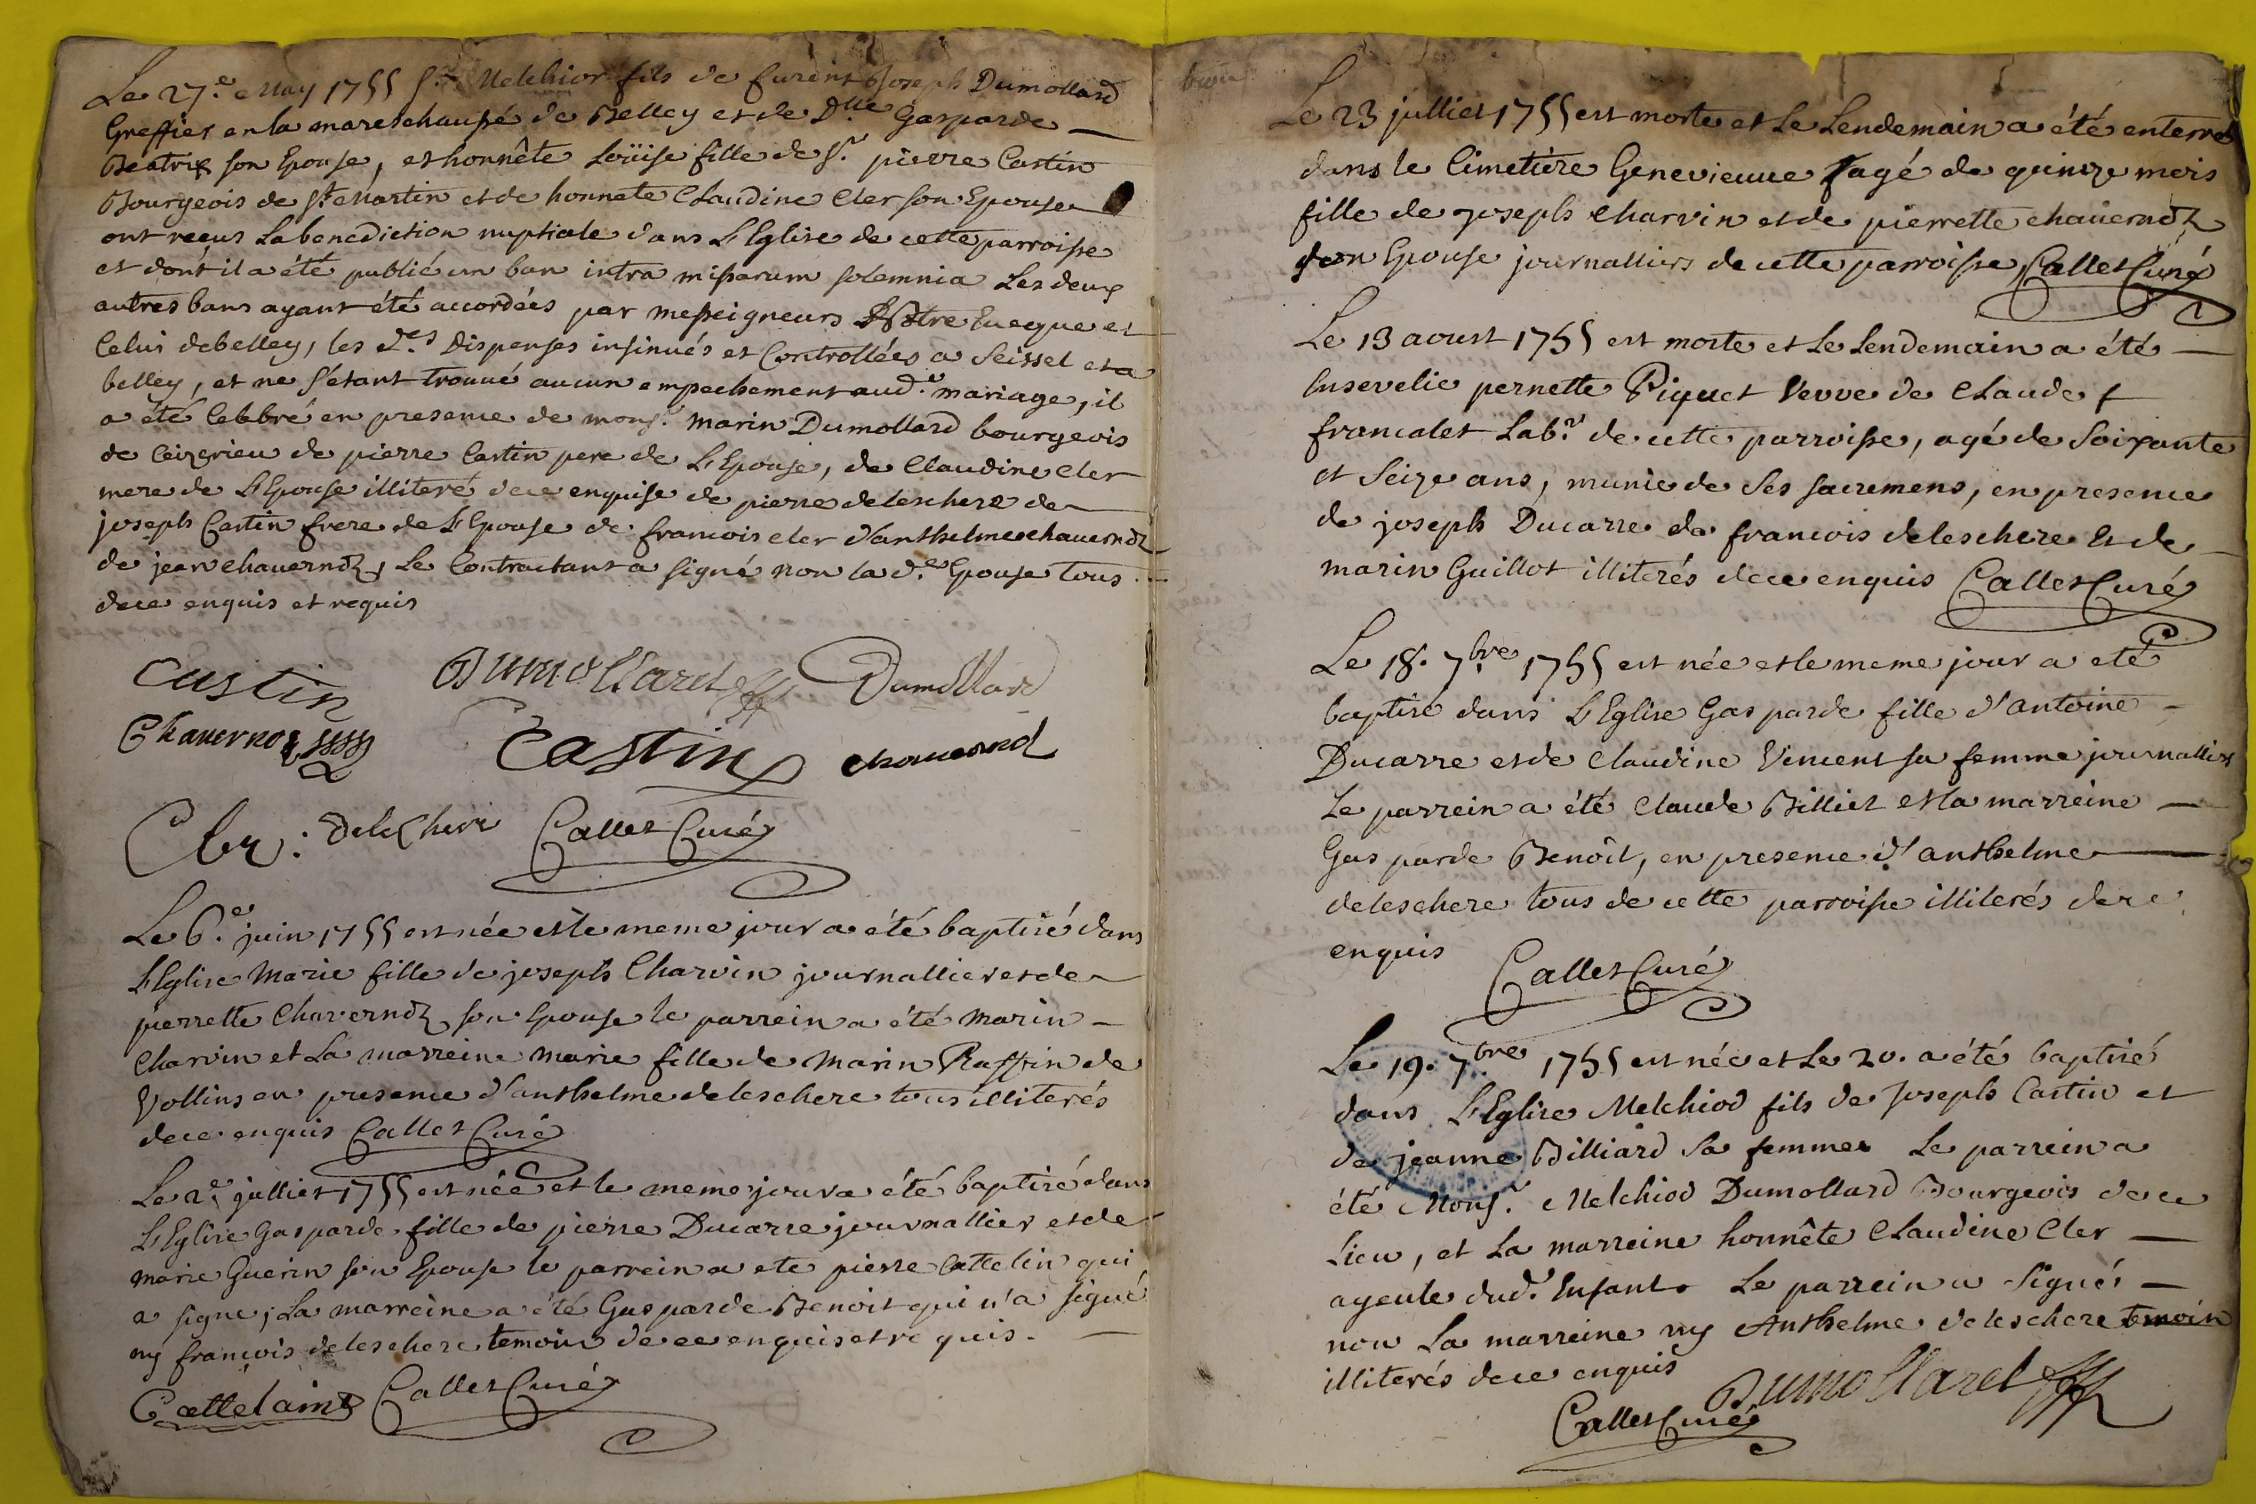 Le 27.e May 1755 Sr. Melchior fils de furent Joseph Dumollard
Greffier en la mareschaussé de Belley et de Dlle Gasparde
Beatrix son Epouse, et honnête Loüise fille de Sr. pierre Castin
Bourgeois de St Martin et de honnete Claudine Cler son Epouse
ont reçus La benediction nuptiale dans L'Eglise de cette parroisse
et dont il a été publié un ban intra missarum solemnia Les deux
autres bans ayant été accordées par messeigneurs Nôtre Eveque et
Celui de belley, les d.es Dispenses insinués et Controllées a Seissel et a
belley, et ne s'étant trouvé aucun empechement aud.t mariage, il
a été Celebré en presence de mons.r Marin Dumollard bourgeois
de Ceizerieu de pierre Castin pere de L'Epouse, de Claudine Cler
mere de L'Epouse illiteré de ce enquise de pierre deleschere de
joseph Castin frere de L'Epouse de francois cler d'anthelme chavernod
de jean chavernod, Le Contractant a signé non la d.e Epouse tous
de ce enquis et requis
Castin Dumollard Dumollard
Chavernod Castin chavernod
Cler: Deleschere Callet Curé
Le 6.e juin 1755 est née et le meme jour a été baptisé dans
L'Eglise Marie fille de joseph Charvin journallier et de
pierrette Chavernod son Epouse le parrein a été Marin
Charvin et La marreine Marie fille de Marin Ruffin de
Vollins en presence d'anthelme deleschere tous illiterés
de ce enquis Callet Curé
Le 2.e julliet 1755 est née et le meme jour a été baptisé dans
L'Eglise Gasparde fille de pierre Ducarre journallier et de
marie Guerin son Epouse le parrein a ete pierre Cattelin qui
a signe; La marreine a été Gasparde Benoit qui n'a signé
ny francois deleschere temoin de ce enquis et requis.
Cattelain Callet Curé
Le 23 julliet 1755 est morte et Le Lendemain a été enterré
dans le Cimetière Genevieuve agé de quinze mois
fille de joseph Charvin et de pierrette chavernod
son Epouse journalliers de cette parroisse Callet Curé
Le 13 aoust 1755 est morte et Le Lendemain a été
Ensevelie pernette Piquet Veuve de Claude
francalet Lab.r de cette parroisse, agé de Soixante
et Seize ans, munie de Ses sacremens, en presence
de joseph Ducarre de francois deleschere Et de
marin Guillot illiterés de ce enquis Callet Curé
Le 18. 7bre 1755 est née et le meme jour a eté
baptisé dans L'Eglise Gasparde fille d'antoine
Ducarre et de Claudine Vincent sa femme journalliers
Le parrein a été Claude Billiet et la marreine
Gasparde Benoît, en presence d'anthelme
deleschere tous de cette parroisse illiterés de ce
enquis Callet Curé
Le 19. 7bre 1755 est née et Le 20. a été baptisé
dans L'Eglise Melchiod fils de Joseph Castin et
de jeanne Billiard Sa femme Le parrein a
été Mons.r Melchiod Dumollard Bourgeois de ce
Lieu, et La marreine honnête Claudine Cler
ayeule dud.t Enfant Le parrein a Signé
non La marreine ny Anthelme deleschere temoin
illiterés de ce enquis Dumollard
Callet Curé